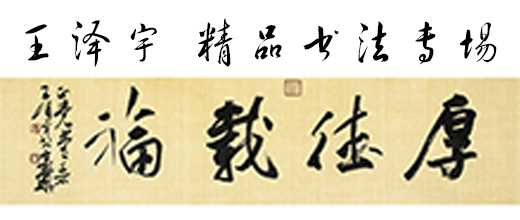 王泽宇 精品书法专场
厚德载福